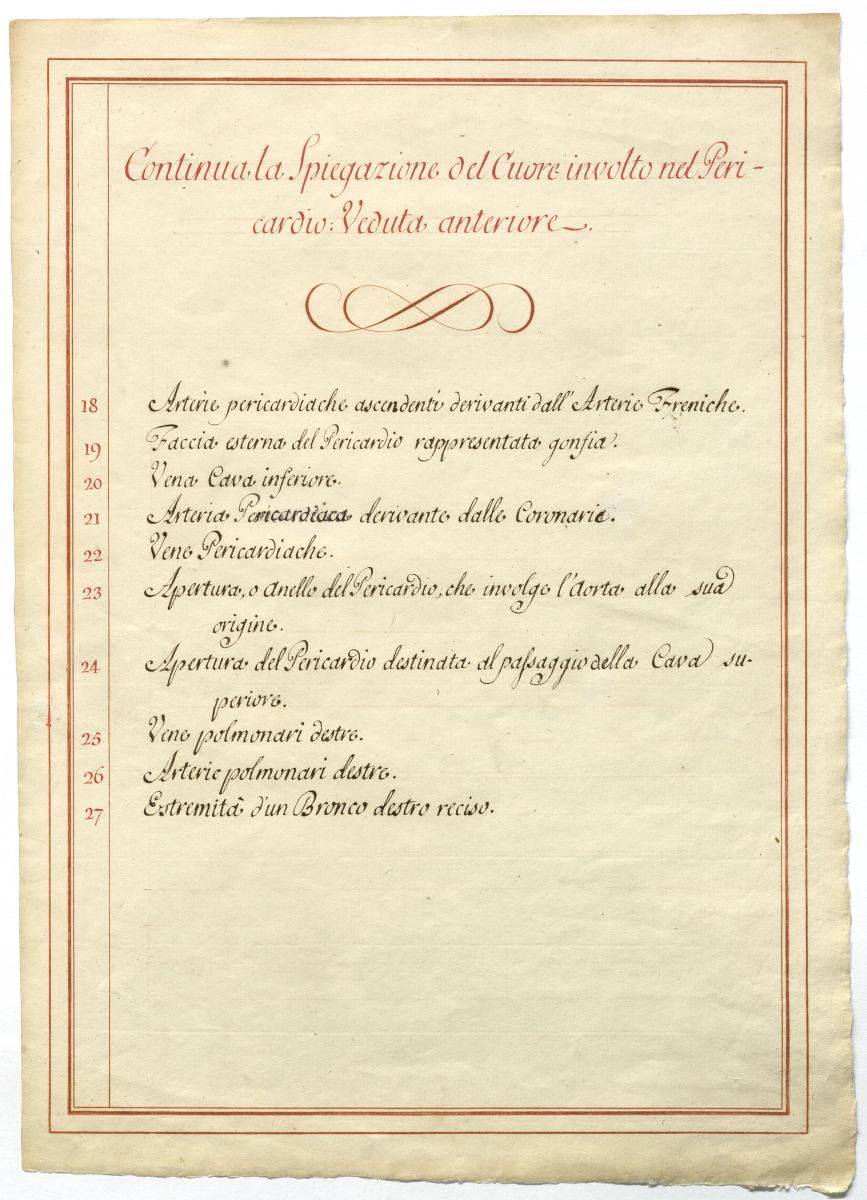 Continua la Spiegazione del Cuore involto nel Peri-
cardio: Veduta anteriore.
18 Arterie pericardiache ascendenti derivanti dall'Arterie Freniche.
19 Faccia esterna del Pericardio rappresentata gonfia.
20 Vena Cava inferiore.
21 Arteria Pericardiaca derivante dalle Coronarie.
22 Vene Pericardiache.
23 Apertura, o anello del Pericardio, che involge l'Aorta alla sua
origine.
24 Apertura del Pericardio destinata al paſsaggio della Cava su-
periore.
25 Vene polmonari destre.
26 Arterie polmonari destre.
27 Estremità d'un Bronco destro reciso.